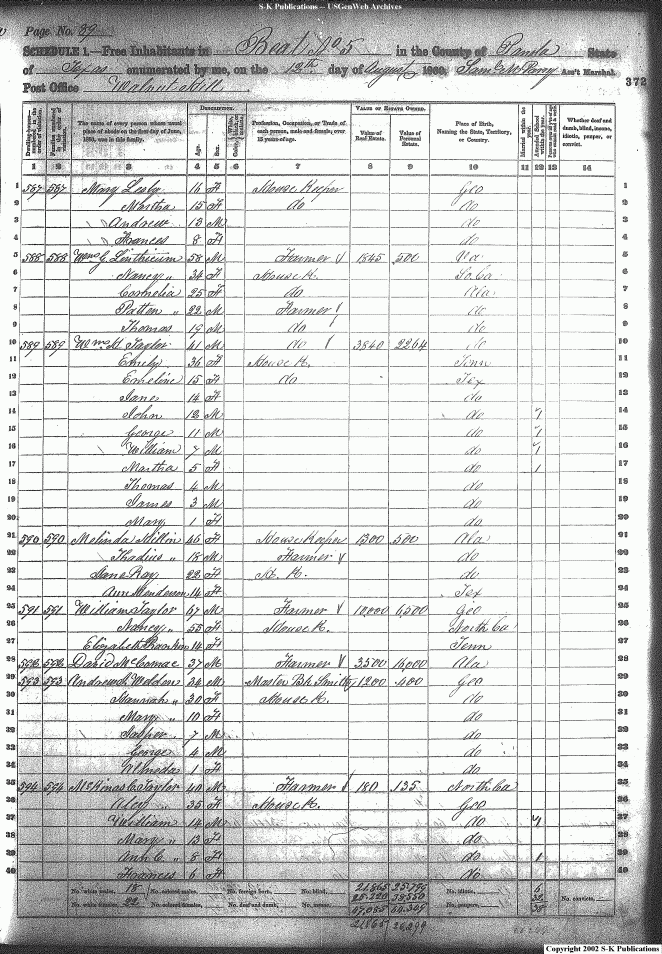 S-K Publications -- USGenWeb Archives
Page No. 89
SCHEDULE 1.—Free Inhabitants in Beat No 5 in the County of Panola State
of Texas enumerated by me, on the 12th day of August 1860. Saml McParry Ass't Marshal.
Post Office Walnut Hill 372
Dwelling-houses—numbered in the order of visitation.
Families numbered in the order of visitation.
The name of every person whose usual place of abode on the first day of June, 1860, was in this family.
DESCRIPTION.
Age.
Sex.
Profession, Occupation, or Trade of each person, male and female, over 15 years of age.
VALUE OF ESTATE OWNED.
Value of Real Estate.
Value of Personal Estate.
Place of Birth, Naming the State, Territory, or Country.
Married within the year.
Attended School within the year.
Whether deaf and dumb, blind, insane, idiotic, pauper, or convict.
1 2 3 4 5 6 7 8 9 10 11 12 13 14
1 587 587 Mary Lesly 16 F House Keeper Geo 1
2 Martha 15 F do do 2
3 Andrew 13 M do 3
4 Frances 8 F do 4
5 588 588 Wm G. Linthicum 58 M Farmer 1845 500 Va 5
6 Nancy " 34 F House K. So Ca 6
7 Cornelia 25 F do Ala 7
8 Patten " 22 M Farmer do 8
9 Thomas 19 M do do 9
10 589 589 Wm H. Taylor 41 M do 3840 2264 do 10
11 Emily 36 F House K. Tenn 11
12 Emeline 15 F do Tex 12
13 Jane 14 F do 13
14 John 12 M do 1 14
15 George 11 M do 1 15
16 William 7 M do 1 16
17 Martha 5 F do 1 17
18 Thomas 4 M do 18
19 James 3 M do 19
20 Mary 1 F do 20
21 590 590 Melinda 46 F House Keeper 1300 500 Ala 21
22 Thadius " 18 M Farmer do 22
23 Jane Ray 22 F H. K. do 23
24 Ann Henderson 14 F Tex 24
25 591 591 William Taylor 67 M Farmer 10,000 6,500 Geo 25
26 Nancy " 55 F House K. North Ca 26
27 Elizabeth 14 F Tenn 27
28 592 592 David McComac 37 M Farmer 3,500 16,000 Ala 28
29 593 593 Andrew Weldon 34 M Master Bk. Smith 1200 400 Geo 29
30 Hannah " 30 F House K. do 30
31 Mary " 10 F do 31
32 Jasper " 7 M do 32
33 George 4 M do 33
34 Almeda 1 F do 34
35 594 594 McKinas C. Taylor 40 M Farmer 180 135 North Ca 35
36 Alcy " 35 F House K. Geo 36
37 William 14 M do 1 37
38 Mary " 13 F do 38
39 Ann C. " 8 F do 1 39
40 Frances 6 F do 40
No. white males, 18 No. colored males, No. foreign born, No. blind, 21,865 No. idiotic, 6 No. convicts,
No. white females, 22 No. colored females, No. deaf and dumb, No. insane, No. paupers,
Copyright 2002 S-K Publications